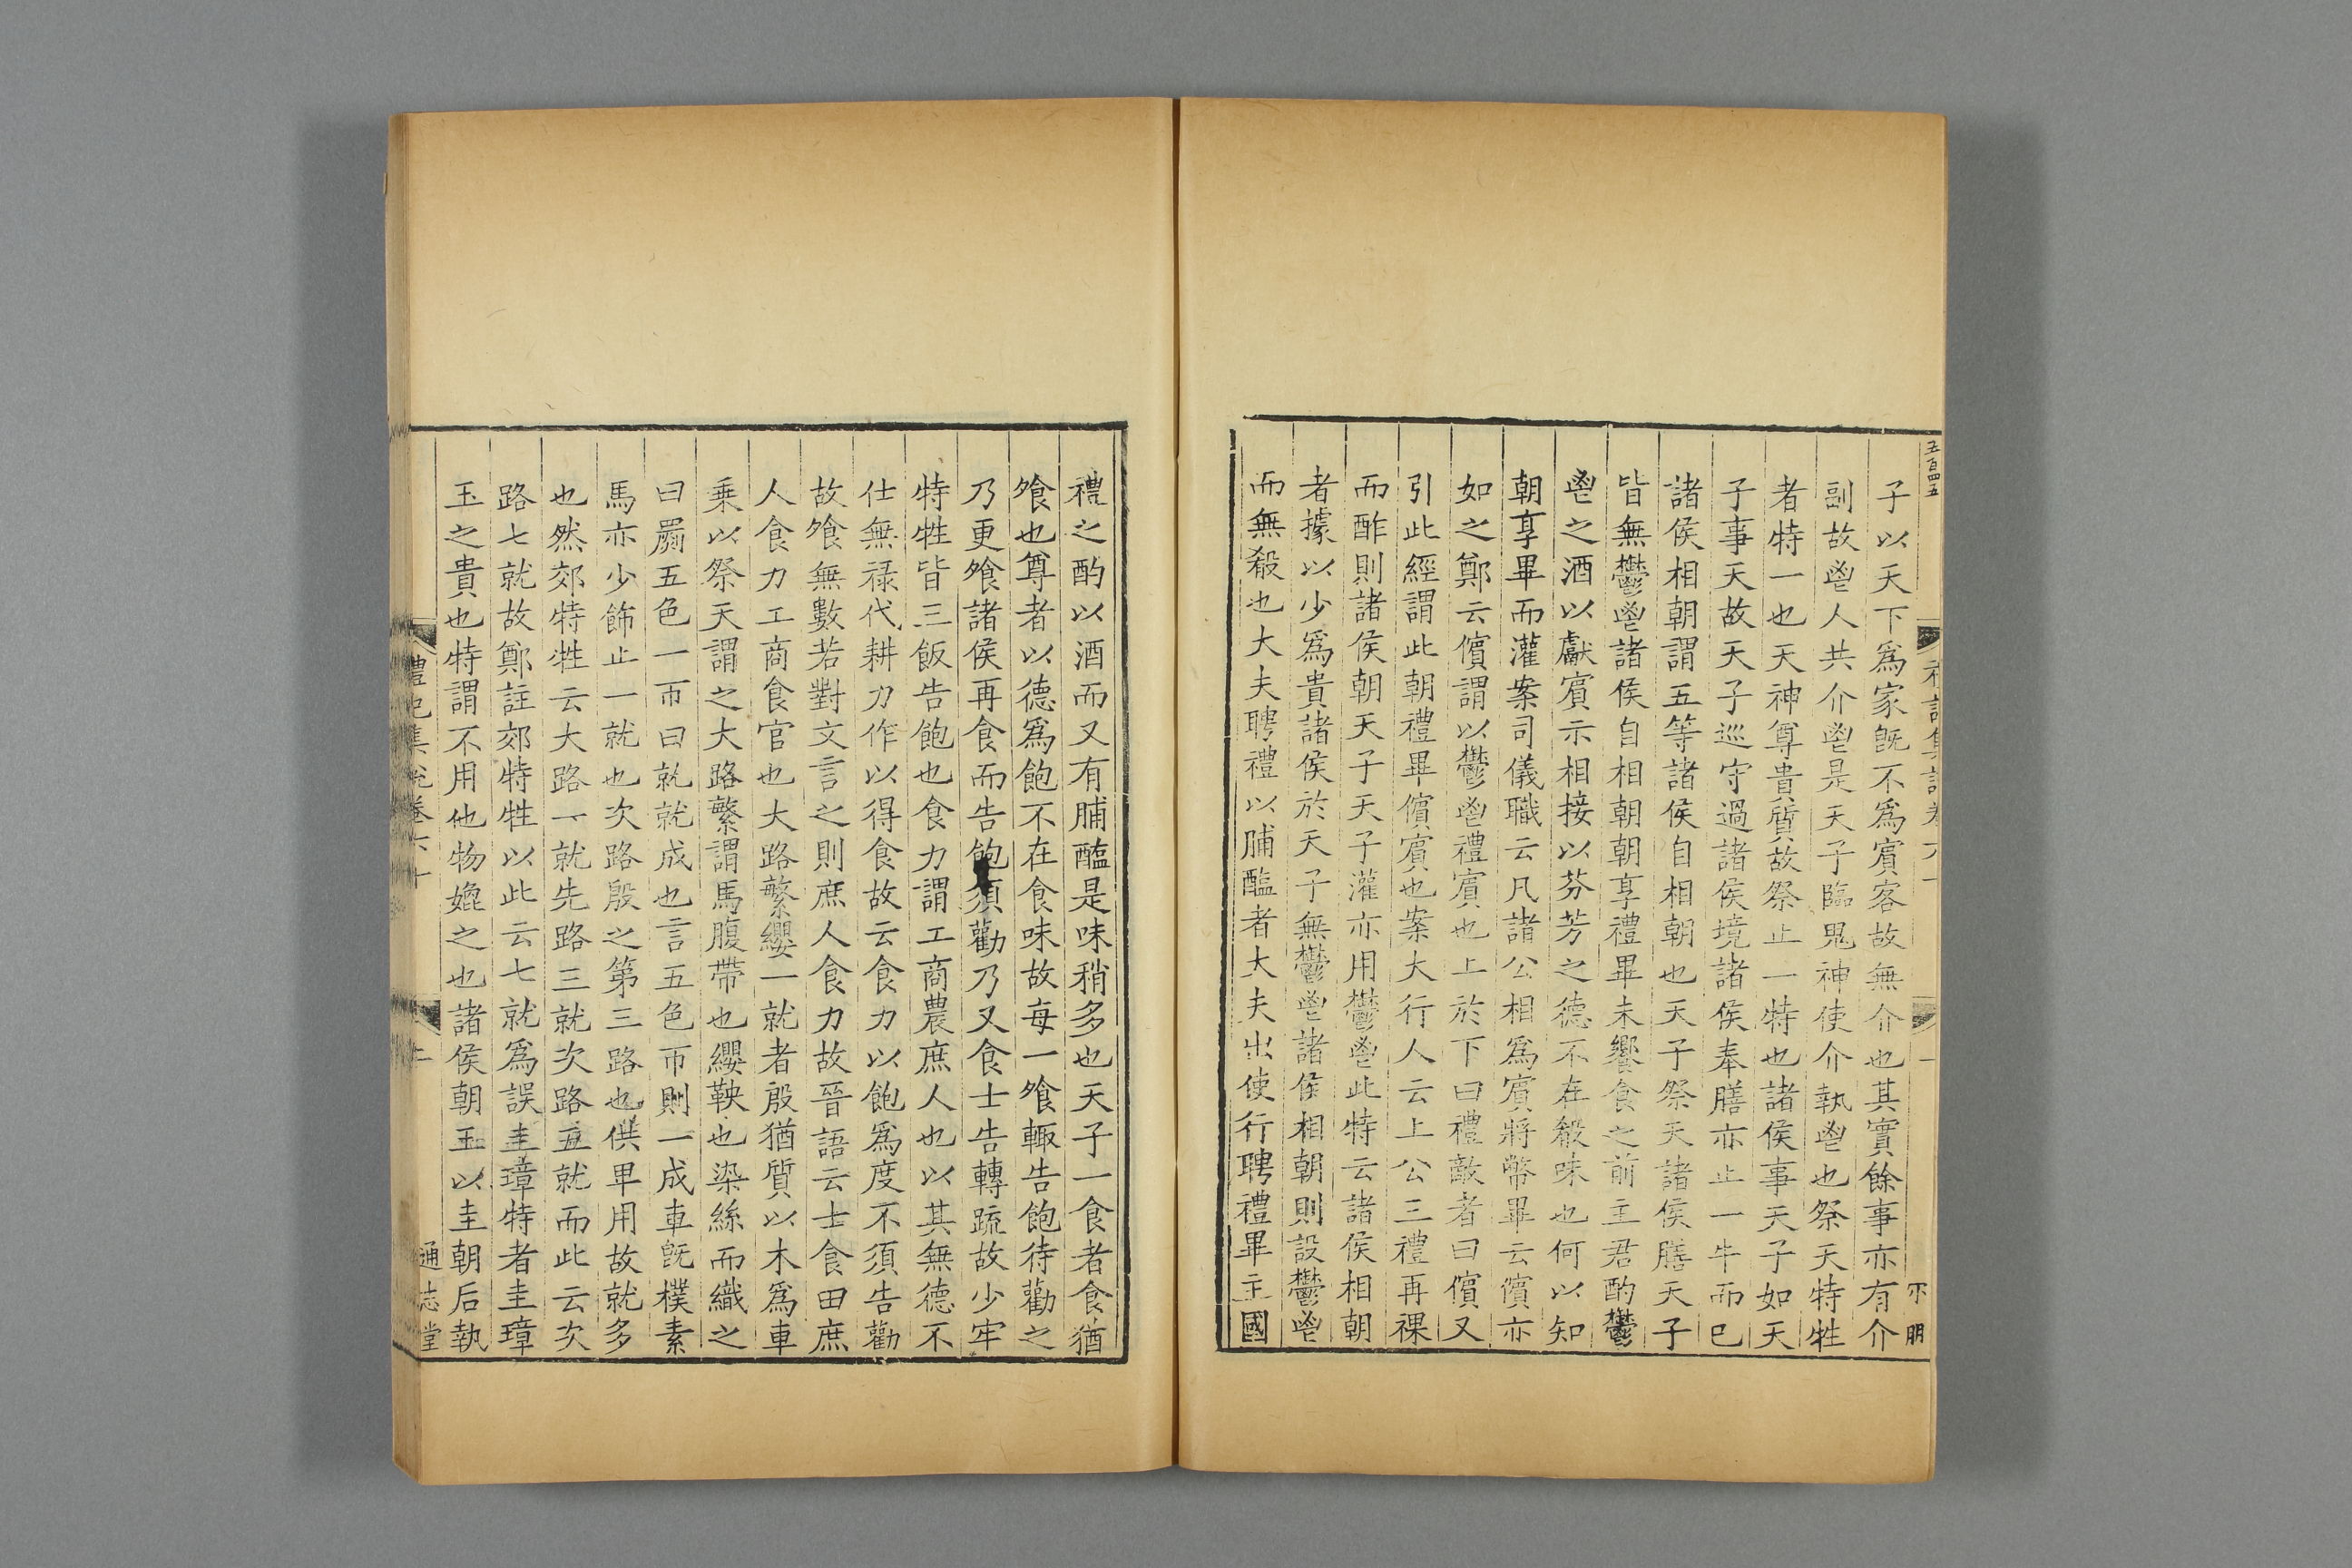 五百四五
子以天下爲家旣不爲賓客故無介也其實餘事亦有介
副故鬯人共介鬯是天子臨鬼神使介執鬯也祭天特牲
者特一也天神尊貴質故祭止一特也諸侯事天子如天
子事天故天子巡守過諸侯境諸侯奉膳亦止一牛而已
諸侯相朝謂五等諸侯自相朝也天子祭天諸侯膳天子
皆無鬱鬯諸侯自相朝朝享禮畢未饗食之前主君酌鬱
鬯之酒以獻賓示相接以芬芳之德不在殽味也何以知
朝享畢而灌案司儀職云凡諸公相爲賓將幣畢云儐亦
如之鄭云儐謂以鬱鬯禮賓也上於下曰禮敵者曰儐又
引此經謂此朝禮畢儐賓也案大行人云上公三禮再祼
而酢則諸侯朝天子天子灌亦用鬱鬯此特云諸侯相朝
者據以少爲貴諸侯於天子無鬱鬯諸侯相朝則設鬱鬯
而無殽也大夫聘禮以脯醢者大夫出使行聘禮畢主國
禮之酌以酒而又有脯醢是味稍多也天子一食者食猶
飧也尊者以德爲飽不在食味故每一飧輒告飽待勸之
乃更飧諸侯再食而告飽須勸乃又食士告轉疏故少牢
特牲皆三飯告飽也食力謂工商農庶人也以其無德不
仕無祿代耕力作以得食故云食力以飽爲度不須告勸
故飧無數若對文言之則庶人食力故晉語云士食田庶
人食力工商食官也大路繁纓一就者殷猶質以木爲車
乗以祭天謂之大路繁謂馬腹帶也纓鞅也染絲而織之
曰罽五色一帀曰就就成也言五色帀則一成車旣樸素
馬亦少飾止一就也次路殷之第三路也供卑用故就多
也然郊特牲云大路一就先路三就次路五就而此云次
路七就故鄭註郊特牲以此云七就爲誤圭璋特者圭璋
玉之貴也特謂不用他物媲之也諸侯朝王以圭朝后執
禮記集說卷六十
二
通志堂